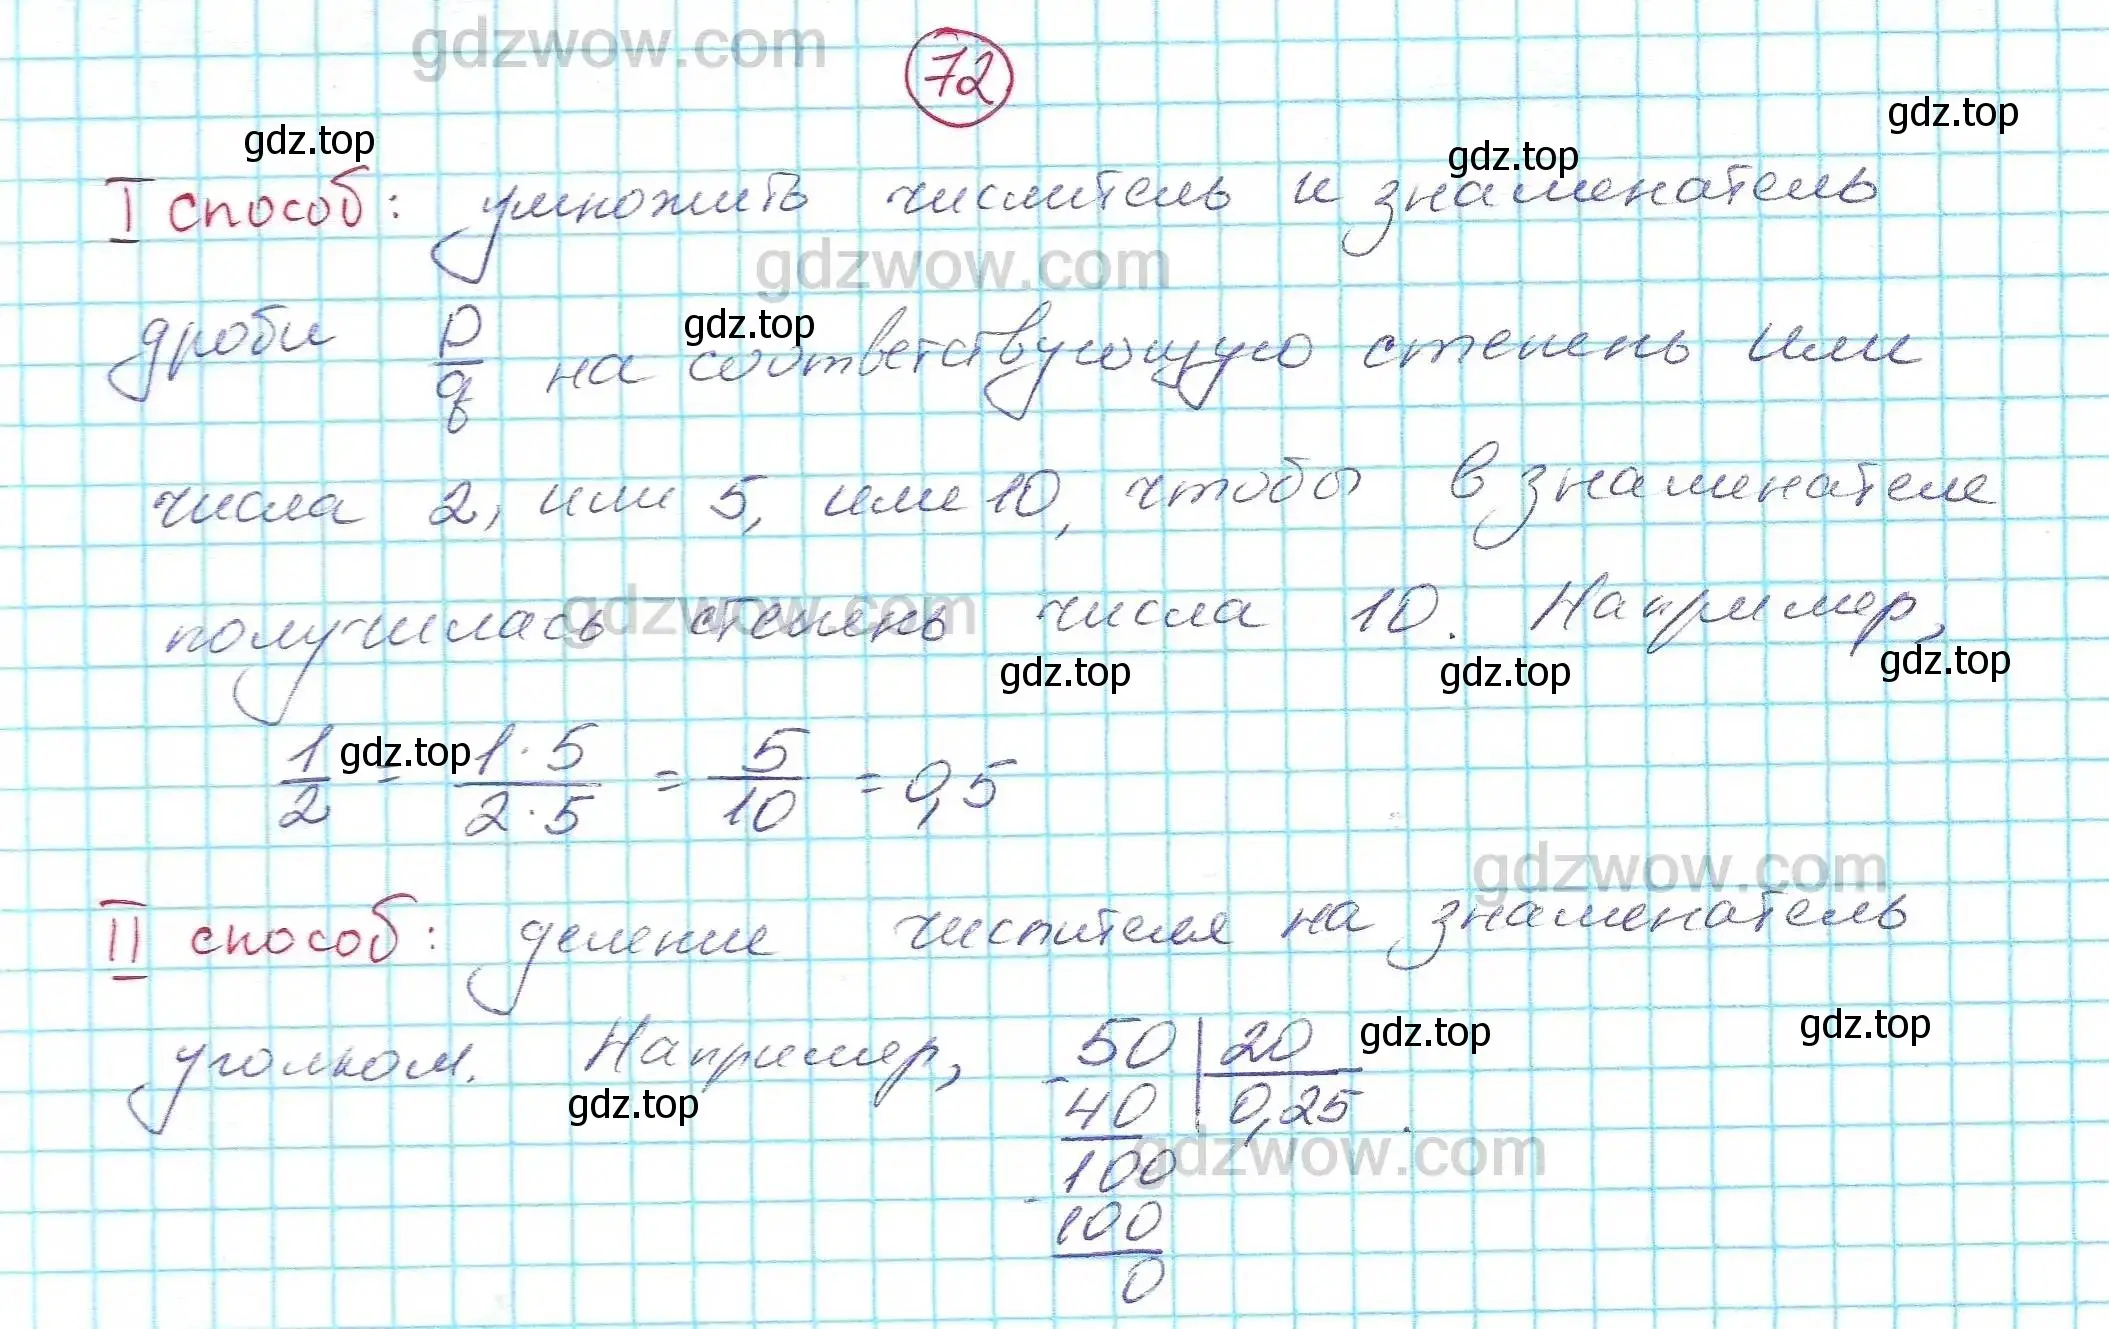 gdzwow.com
72
gdz.top gdz.top gdz.top
I способ: умножить числитель и знаменатель
gdzwow.com
дроби p/q на соответствующую степень или
gdz.top
числа 2, или 5, или 10, чтобы в знаменателе
gdzwow.com
получилась степень числа 10. Например,
gdz.top gdz.top gdz.top
1/2 = 1·5/2·5 = 5/10 = 0,5
gdz.top
gdzwow.com
II способ: деление числителя на знаменатель
уголком. Например, 50 | 20
gdz.top gdz.top
gdz.top
- 40 | 0,25.
gdzwow.com
100
- 100
0